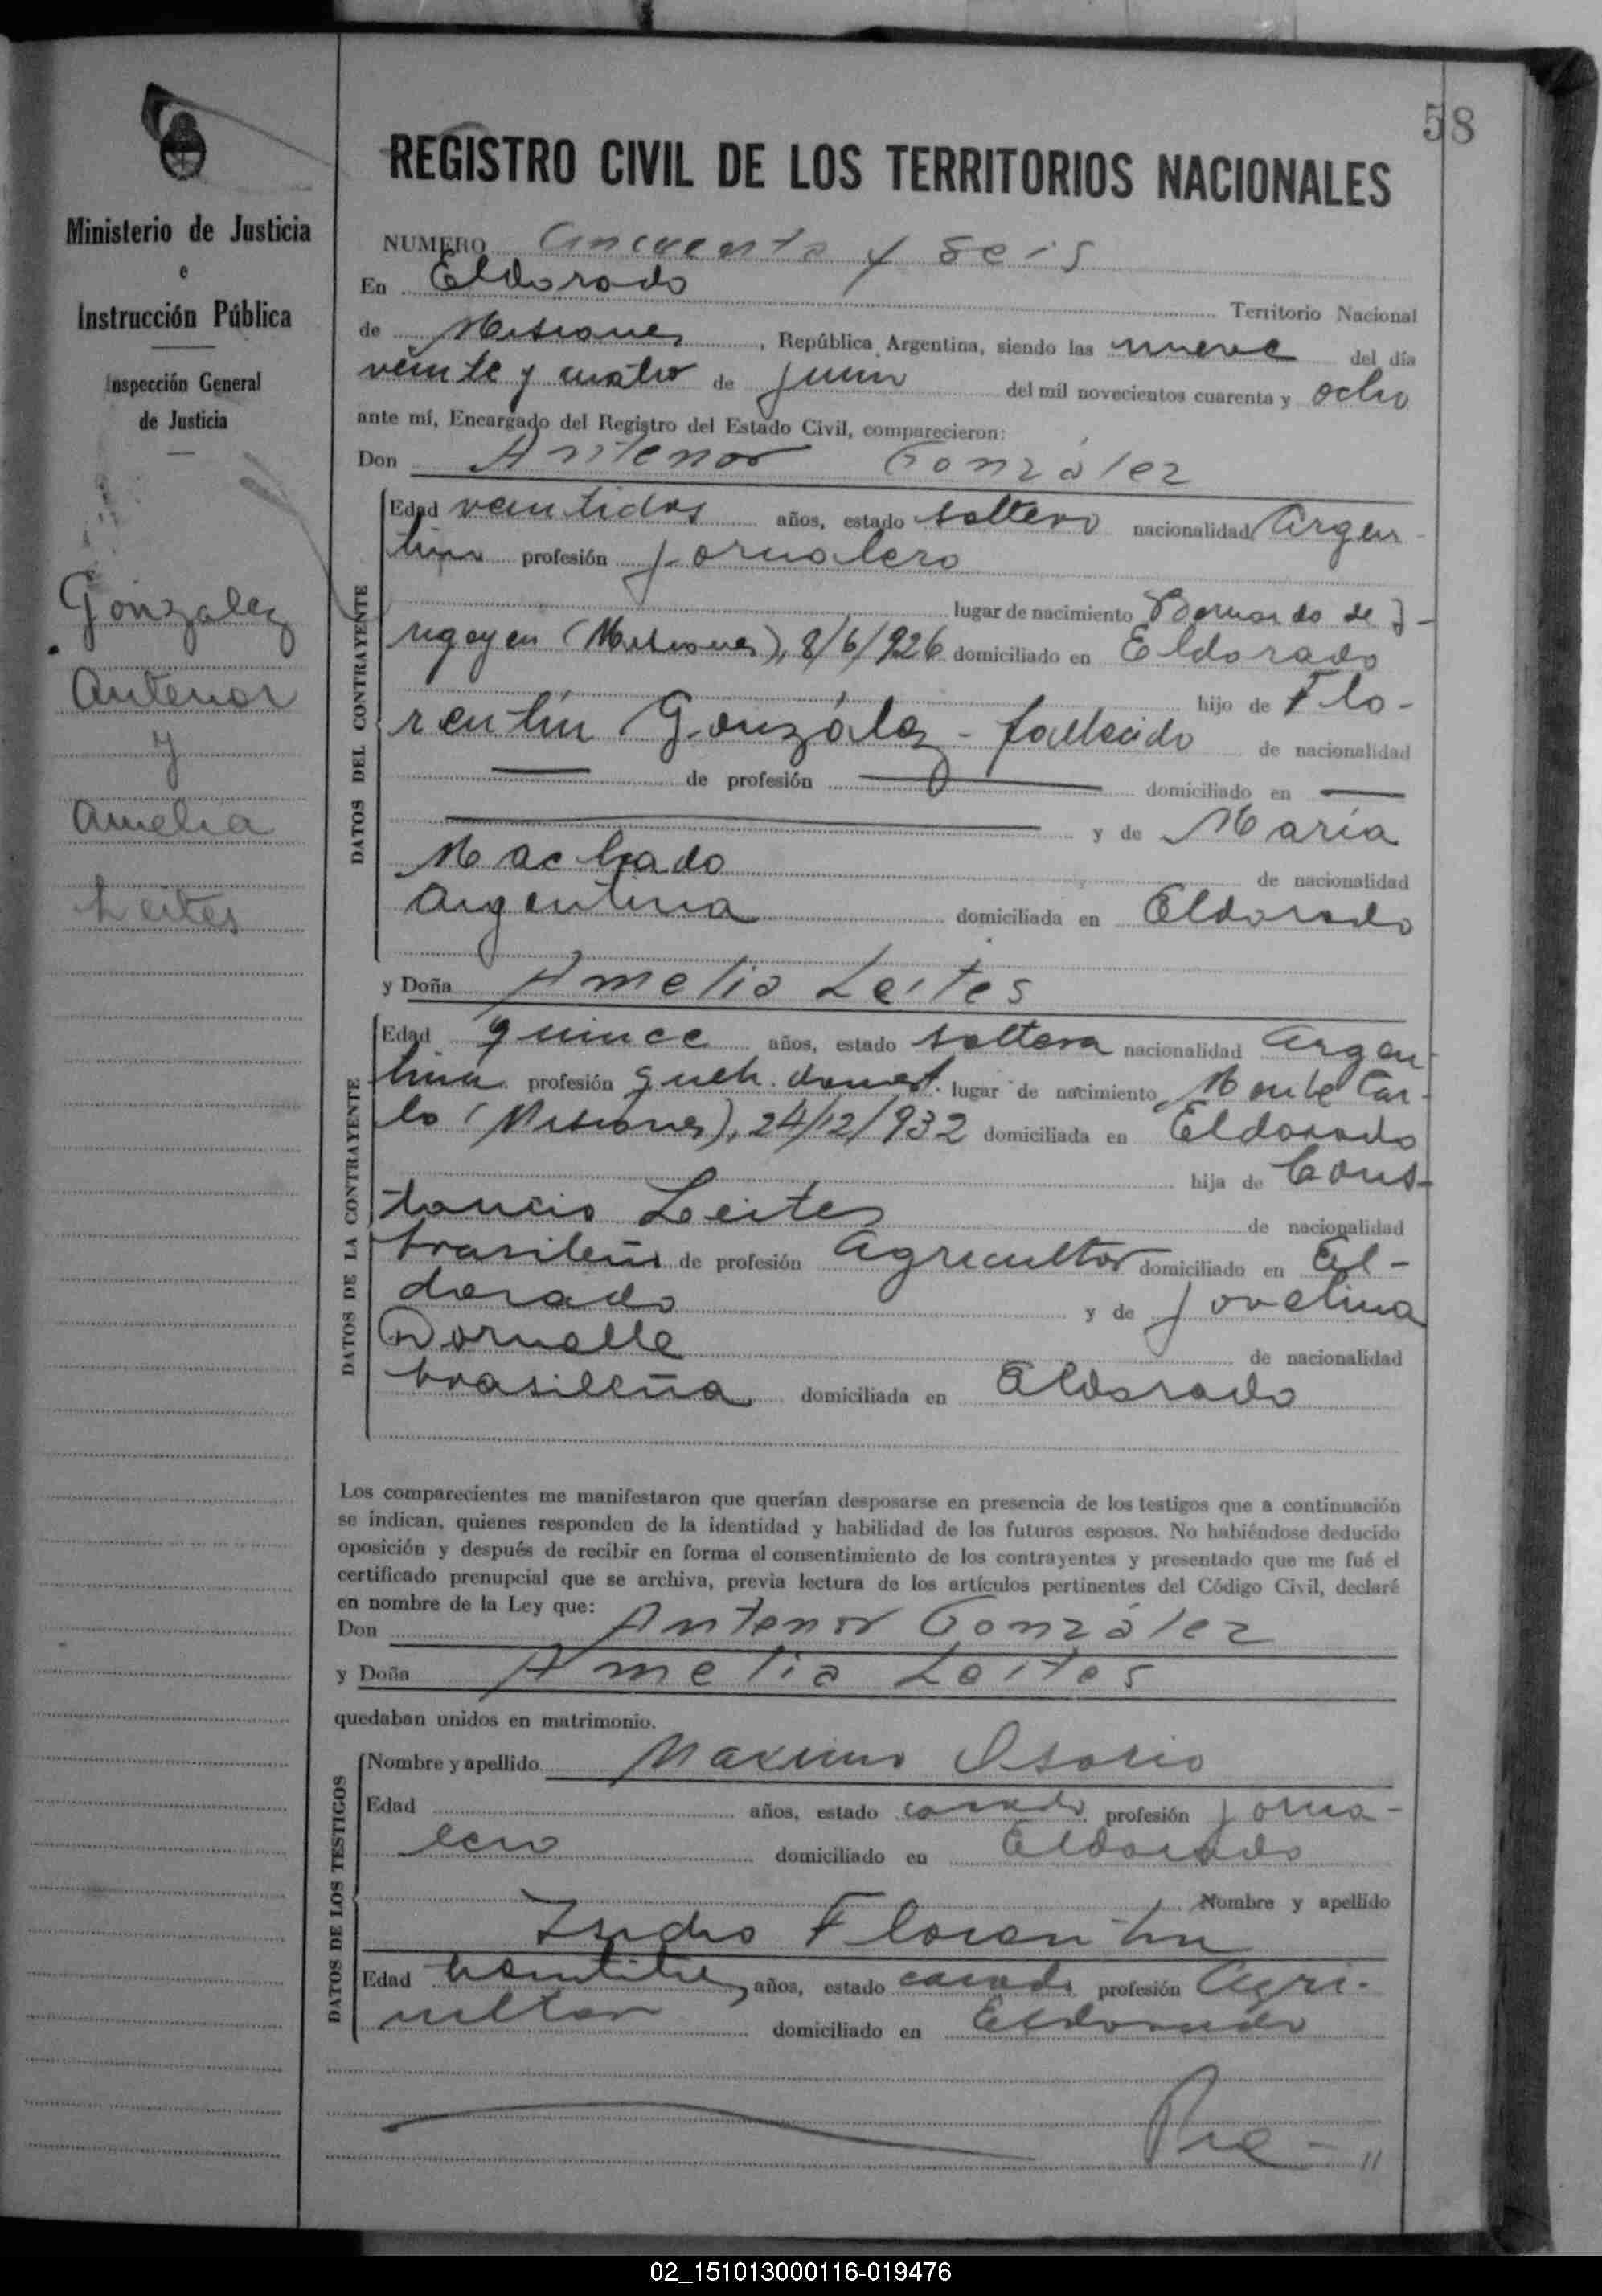 58
REGISTRO CIVIL DE LOS TERRITORIOS NACIONALES
Ministerio de Justicia
e
Instrucción Pública
Inspección General
de Justicia
Gonzalez
Antenor
y
Amelia
Leites
NUMERO Cincuenta y seis
En Eldorado
Territorio Nacional
de Misiones, República Argentina, siendo las nueve del día
veinte y cuatro de Junio del mil novecientos cuarenta y ocho
ante mí, Encargado del Registro del Estado Civil, comparecieron:
Don Antenor González
DATOS DEL CONTRAYENTE
Edad veintidos años, estado soltero nacionalidad Argen-
tina profesión jornalero
lugar de nacimiento Bernardo de I-
rigoyen (Misiones), 8/6/926 domiciliado en Eldorado
hijo de Flo-
rentín González - fallecido de nacionalidad
de profesión domiciliado en
y de María
Machado
de nacionalidad
Argentina domiciliada en Eldorado
y Doña Amelia Leites
DATOS DE LA CONTRAYENTE
Edad quince años, estado soltera nacionalidad Argen-
tina profesión queh. domest. lugar de nacimiento Monte Car-
lo (Misiones), 24/12/932 domiciliada en Eldorado
hija de Cons-
tancio Leites de nacionalidad
brasileño de profesión Agricultor domiciliado en El-
dorado y de Jovelina
Dornelle de nacionalidad
brasileña domiciliada en Eldorado
Los comparecientes me manifestaron que querían desposarse en presencia de los testigos que a continuación
se indican, quienes responden de la identidad y habilidad de los futuros esposos. No habiéndose deducido
oposición y después de recibir en forma el consentimiento de los contrayentes y presentado que me fué el
certificado prenupcial que se archiva, previa lectura de los artículos pertinentes del Código Civil, declaré
en nombre de la Ley que:
Don Antenor González
y Doña Amelia Leites
quedaban unidos en matrimonio.
DATOS DE LOS TESTIGOS
Nombre y apellido Maximo Osorio
Edad años, estado casado profesión jorna-
lero domiciliado en Eldorado
Nombre y apellido
Isidro Florentin
Edad años, estado casado profesión Agri-
cultor domiciliado en Eldorado
02_151013000116-019476